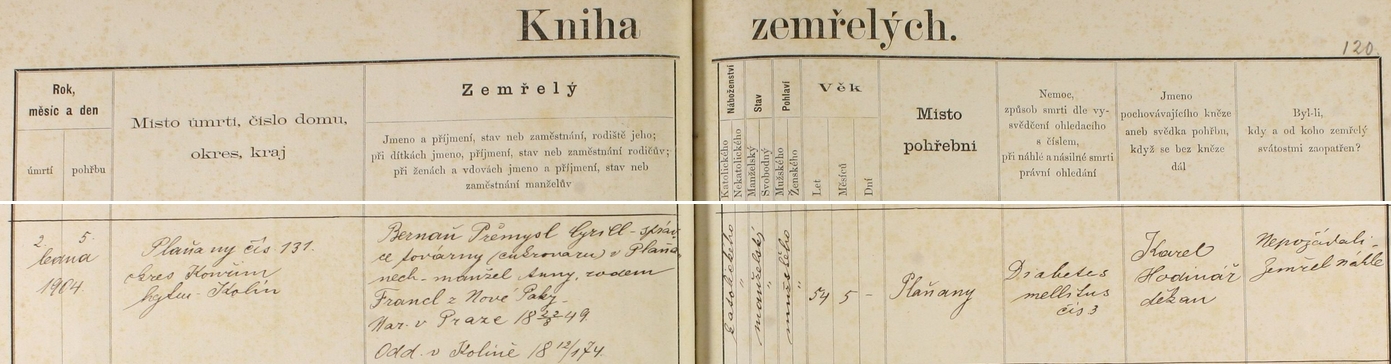 Kniha zemřelých.
120.
Rok,
měsíc a den
úmrtí pohřbu
Místo úmrtí, číslo domu,
okres, kraj
Zemřelý
Jméno a příjmení, stav neb zaměstnání, rodiště jeho;
při dítkách jmeno, příjmení, stav neb zaměstnání rodičův;
při ženách a vdovách jmeno a příjmení, stav neb
zaměstnání manželův
Náboženství
Katolického
Nekatolického
Stav
Manželský
Svobodný
Pohlaví
Mužského
Ženského
Věk
Let
Měsíců
Dní
Místo
pohřební
Nemoc,
způsob smrti dle vy-
svědčení ohledacího
s číslem,
při náhlé a násilné smrti
právní ohledání
Jmeno
pochovávajícího kněze
aneb svědka pohřbu,
když se bez kněze
dál
Byl-li,
kdy a od koho zemřelý
svátostmi zaopatřen?
2 5.
ledna
1904
Plaňany čís 131.
okres Kouřim
hejtm. Kolín
Bernan Přemysl Cyrill - správ
ce továrny (cukrovaru) v Plaňa
nech - manžel Anny, rodem
Francl z Nové Paky -
Nar. v Praze 18 22/3 49
Odd. v Kolíně 18 12/1 74.
katolického
manželský
mužského
54 5 -
Plaňany
Diabetes
mellitus
čís 3
Karel
Hodinář
děkan
Nepožádáli -
Zemřel náhle